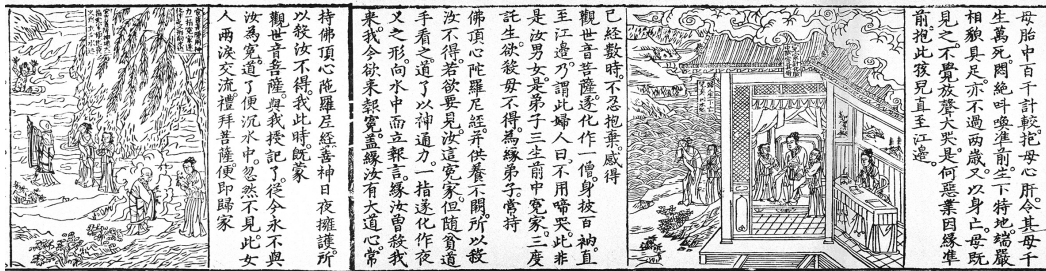 母胎中百千計較。抱母心肝。令其母千
生萬死。悶絶叫喚。準前生下。特地端嚴
相貌具足。亦不過兩歲。又以身亡。母既
見之。不覺放聲大哭。是何惡業因緣。準
前抱此孩兒直至江邊。
已經數時。不忍抱棄。感得
觀世音菩薩。遂化作一僧。身披百衲。直
至江邊。乃謂此婦人曰。不用啼哭。此非
是汝男女。是弟子三生前中冤家。三度
託生。欲殺母不得。為緣弟子。常持
佛頂心陀羅尼經。并供養不闕。所以殺
汝不得。若欲要見汝這冤家。但隨貧道
手看之。道了以神通力。一指遂化作夜
叉之形。向水中而立。報言緣汝曾殺我
來。我今欲來報冤。盖緣汝有大道心。常
持佛頂心陁羅尼經。善神日夜擁護。所
以殺汝不得。我此時既蒙
觀世音菩薩。與我授記了。從今永不與
汝為冤。道了便沉水中。忽然不見。此女
人兩淚交流。禮拜菩薩。便即歸家